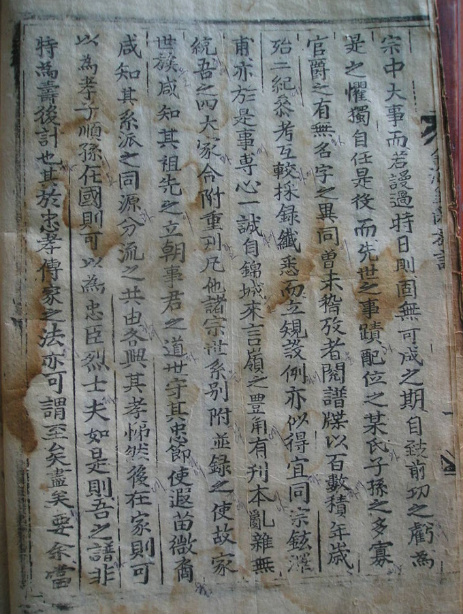 宗中大事而若謾過時日則固無可成之期自致前功之虧爲
是之懼獨自任是役而先世之事蹟配位之某氏子孫之多寡
官爵之有無名字之異同曾未稽攷者閱譜牒以百數積年歲
殆二紀叅考互較採錄纖悉而立規設例亦似得宜同宗鉉澤
甫亦於是事專心一誠自錦城來言嶺之豊角有刊本亂雜無
統吾之四大家合附重刊凡他諸宗世系別附並錄之使故家
世族咸知其祖先之立朝事君之道世守其忠節使遐苗微裔
咸知其系派之同源分流之共由各興其孝悌然後在家則可
以爲孝子順孫在國則可以爲忠臣烈士夫如是則吾之譜非
特爲壽後計也其於忠孝傳家之法亦可謂至矣盡矣要余當